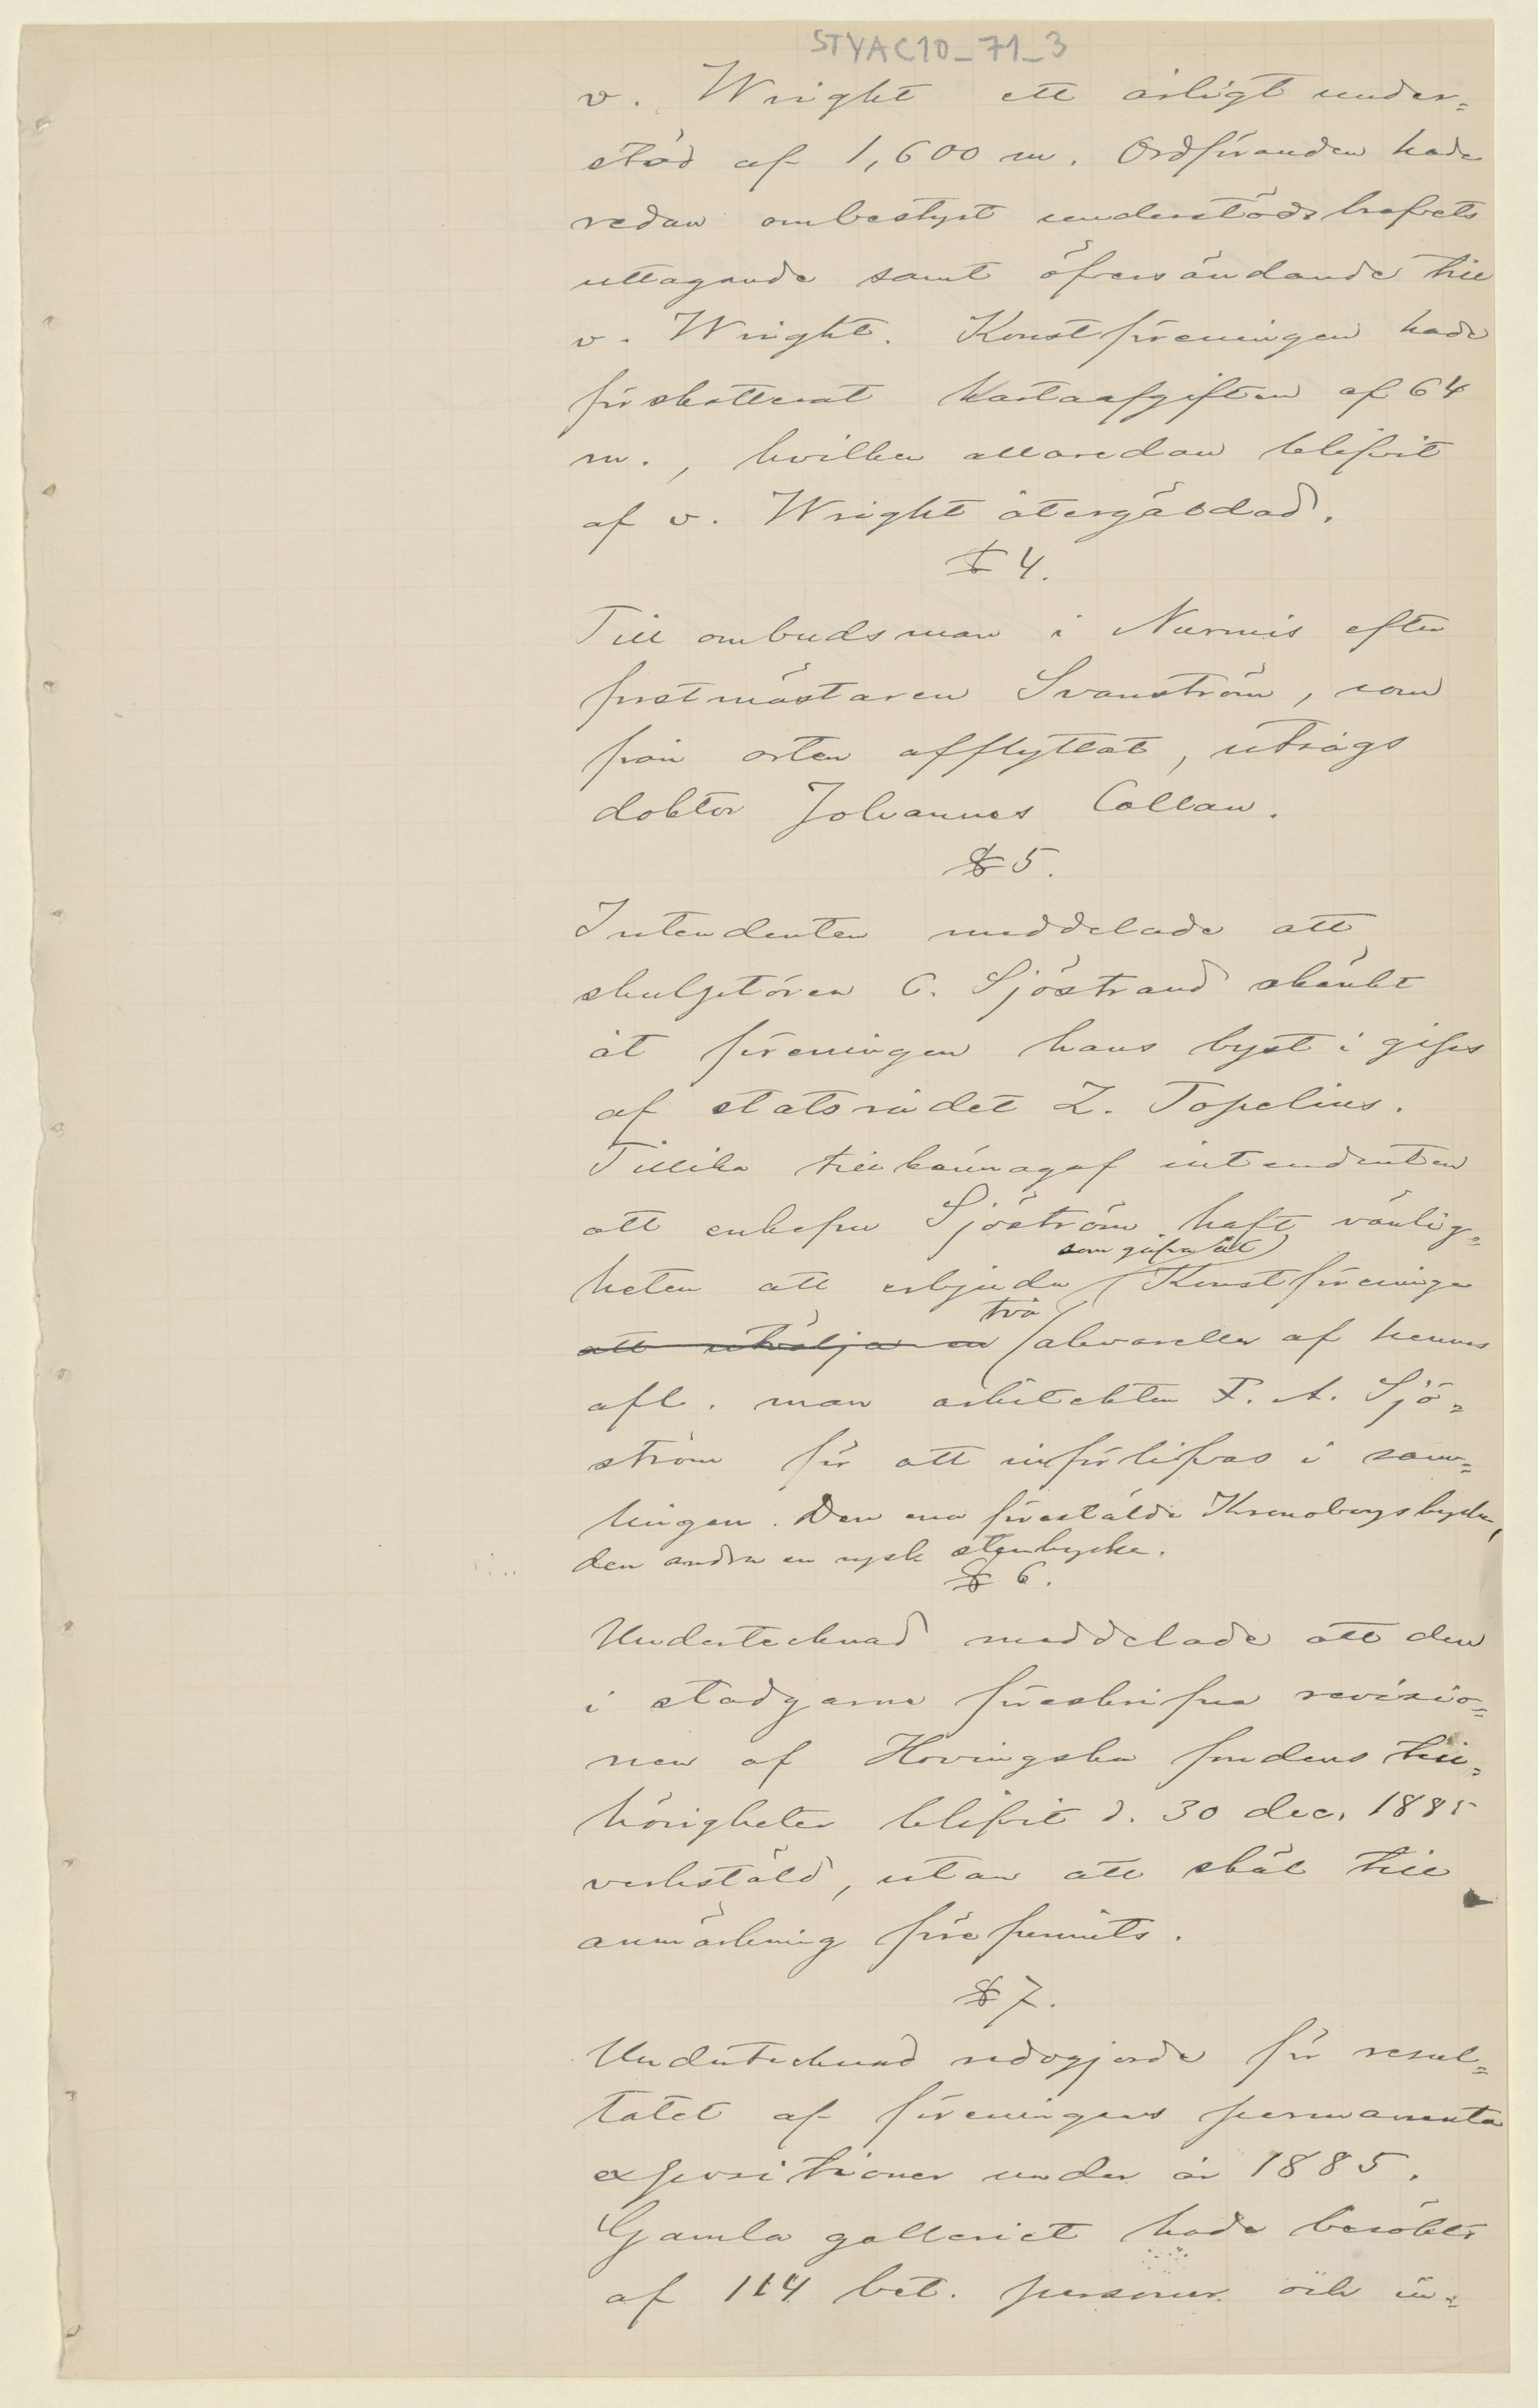 STYAC10_71_3
v. Wright ett årligt under=
stöd af 1,600 m. Ordföranden hade
redan ombestyrt understödsbrefvets
uttagande samt öfversändande till
v. Wright. Konstföreningen hade
förskotterat kartaafgiften af 64
m., hvilken allaredan blifvit
af v. Wright återgäldad.
§ 4.
Till ombudsman i Nurmis efter
postmästaren Svanström, som
från orten afflyttat, utsågs
doktor Johannes Collan.
§ 5.
Intendenten meddelade att
skulptören C. Sjöstrand skänkt
åt föreningen hans byst i gips
af statsrådet Z. Topelius.
Tillika tillkännagaf intendenten
att enkefru Sjöström haft vänlig=
som gåfva åt
heten att erbjuda Konstföreningen
två
att utvälja en akvareller af hennes
afl. man arkitekten F. A. Sjö=
ström för att införlifvas i sam=
lingen. Den ena förestälde Kronobergs kyrka,
den andra en rysk stenkyrka.
§ 6.
Undertecknad meddelade att den
i stadgarna föreskrifna revisio=
nen af Hovingska fondens till=
hörigheter blifvit d. 30 dec. 1885
verkstäld, utan att skäl till
anmärkning förefunnits.
§ 7.
Undertecknad redogjorde för resul=
tatet af föreningens permanenta
expositioner under år 1885.
Gamla galleriet hade besökts
af 114 bet. personer och in=